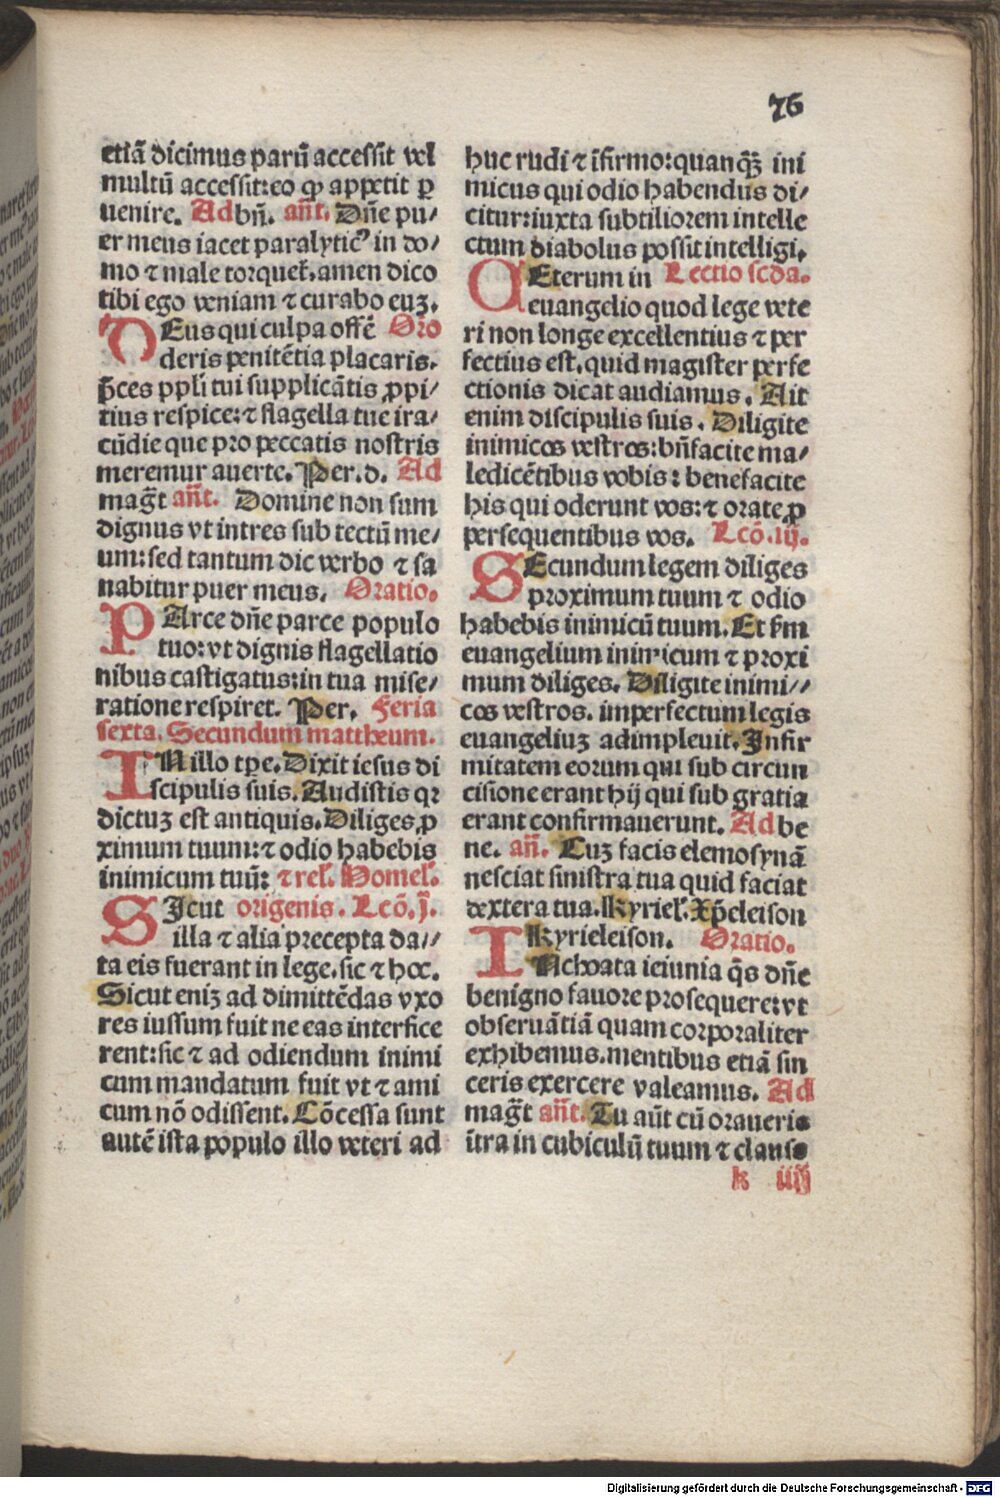 76
etiã dicimus parũ accessit vel
multũ accessit:eo ꝙ appetit ꝑ
uenire. Ad bñ. añt. Dñe pu⸗
er meus iacet paralyticꝰ in do⸗
mo ⁊ male torquet᷑.amen dico
tibi ego veniam ⁊ curabo euꝫ.
DEus qui culpa offẽ Oro
deris penitẽtia placaris.
p̄ces ppl̓i tui supplicãtis ꝓpi⸗
tius respice:⁊ flagella tue ira⸗
cũdie que pro peccatis nostris
meremur auerte. Per.d. Ad
mag̃t añt. Domine non sum
dignus vt intres sub tectũ me⸗
um:sed tantum dic verbo ⁊ sa
nabitur puer meus. Oratio.
PArce dñe parce populo
tuo:vt dignis flagellatio
nibus castigatus:in tua mise⸗
ratione respiret. Per. Feria
sexta. Secundum mattheum.
IN illo tpe. Dixit iesus di
scipulis suis. Audistis qꝛ
dictuꝫ est antiquis. Diliges ꝓ
ximum tuum:⁊ odio habebis
inimicum tuũ: ⁊ rel̓. Homel̓.
SIcut origenis. Lcõ.j.
illa ⁊ alia precepta da⸗
ta eis fuerant in lege.sic ⁊ hoc.
Sicut eniꝫ ad dimittẽdas vxo
res iussum fuit ne eas interfice
rent:sic ⁊ ad odiendum inimi
cum mandatum fuit vt ⁊ ami
cum nõ odissent. Cõcessa sunt
autẽ ista populo illo veteri ad
huc rudi ⁊ ĩfirmo:quanꝗꝫ ini
micus qui odio habendus di⸗
citur:iuxta subtiliorem intelle
ctum diabolus possit intelligi.
CEterum in Lectio scda.
euangelio quod lege vete
ri non longe excellentius ⁊ per
fectius est.quid magister perfe
ctionis dicat audiamus. Ait
enim discipulis suis. Diligite
inimicos vestros:bñfacite ma⸗
ledicẽtibus vobis: benefacite
his qui oderunt vos:⁊ orate ꝓ
persequentibus vos. Lcõ.iij.
SEcundum legem diliges
proximum tuum ⁊ odio
habebis inimicũ tuum. Et ẜm
euangelium inimicum ⁊ proxi
mum diliges. Diligite inimi⸗
cos vestros. imperfectum legis
euangeliuꝫ adimpleuit. Infir
mitatem eorum qui sub circun
cisione erant hij qui sub gratia
erant confirmauerunt. Ad be
ne. añ. Cuꝫ facis elemosynã
nesciat sinistra tua quid faciat
dextera tua. Kyriel̓. Xp̃eleison
Kyrieleison. Oratio.
INchoata ieiunia q̃s dñe
benigno fauore prosequere:vt
obseruãtiã quam corporaliter
exhibemus.mentibus etiã sin
ceris exercere valeamus. Ad
mag̃t añt. Tu aũt cũ oraueris
ĩtra in cubiculũ tuum ⁊ clauso
k iiij
Digitalisierung gefördert durch die Deutsche Forschungsgemeinschaft - DFG